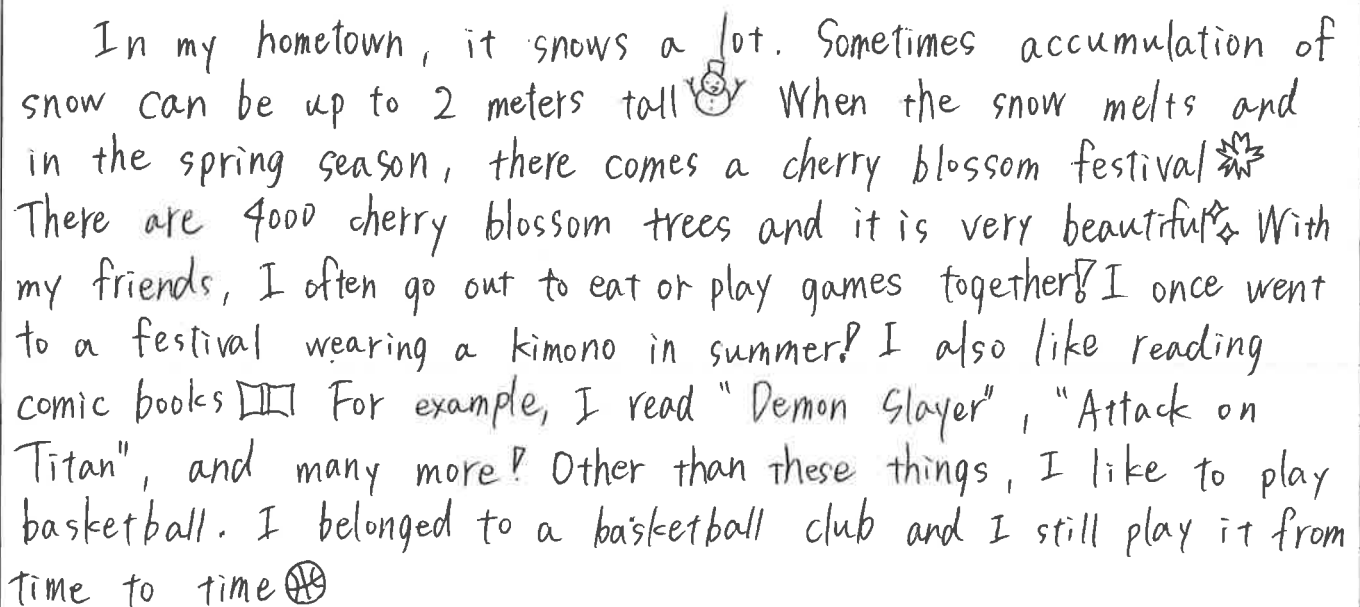 In my hometown, it snows a lot. Sometimes accumulation of
snow can be up to 2 meters tall When the snow melts and
in the spring season, there comes a cherry blossom festival
There are 4000 cherry blossom trees and it is very beautiful With
my friends, I often go out to eat or play games together! I once went
to a festival wearing a kimono in summer! I also like reading
comic books For example, I read "Demon Slayer", "Attack on
Titan", and many more! Other than these things, I like to play
basketball. I belonged to a basketball club and I still play it from
time to time